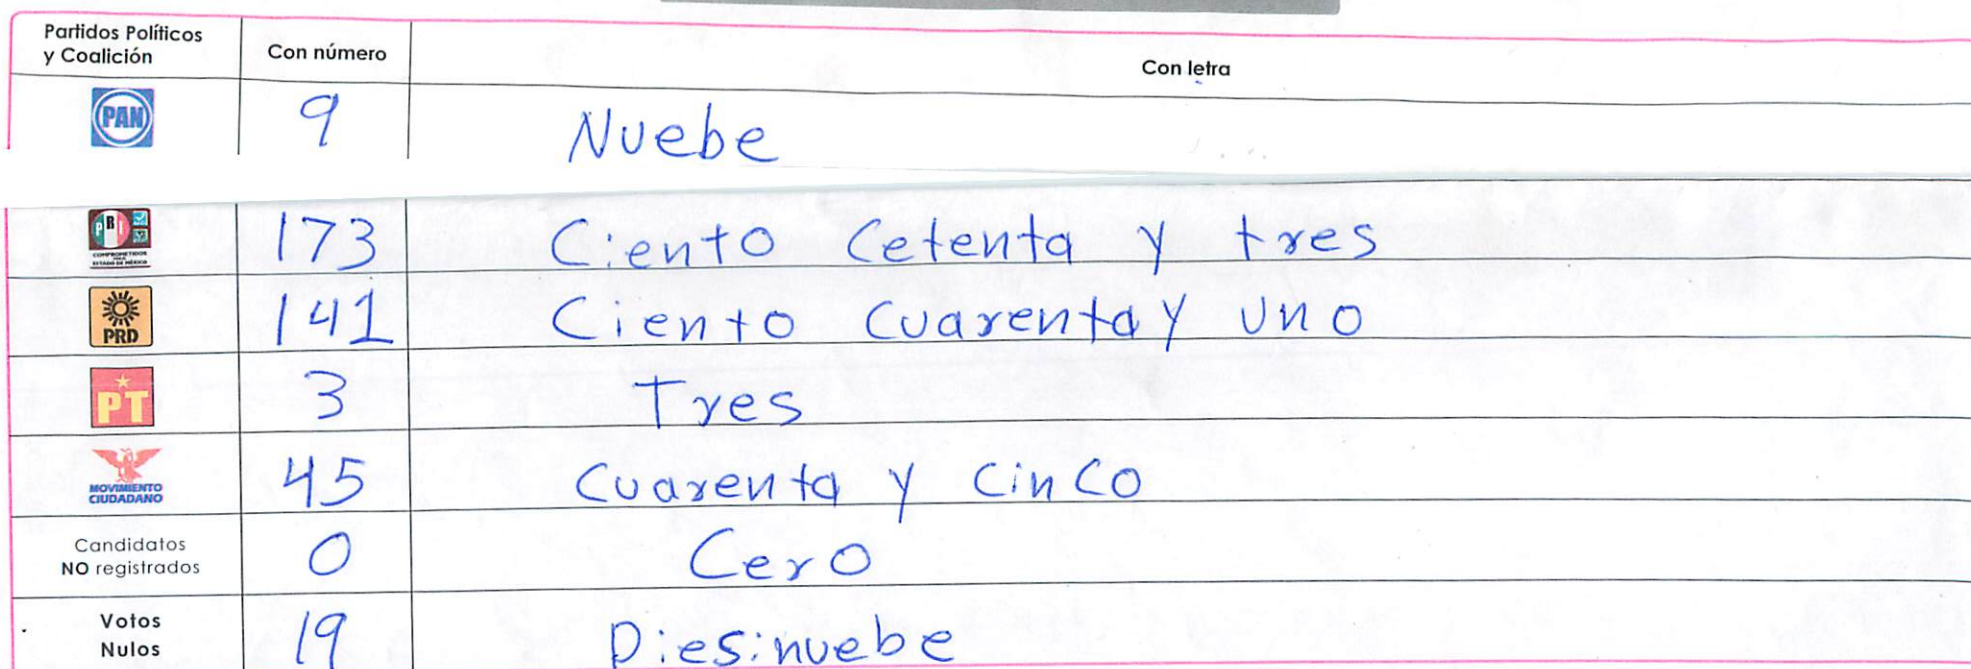 Partidos Políticos
y Coalición Con número Con letra
PAN 9 Nuebe
PRI
COMPROMETIDOS
POR EL
ESTADO DE MÉXICO
173 Ciento Cetenta y tres
PRD 141 Ciento Cuarenta y uno
PT 3 Tres
MOVIMIENTO
CIUDADANO 45 Cuarenta y Cinco
Candidatos
NO registrados 0 Cero
Votos
Nulos 19 Diesinuebe